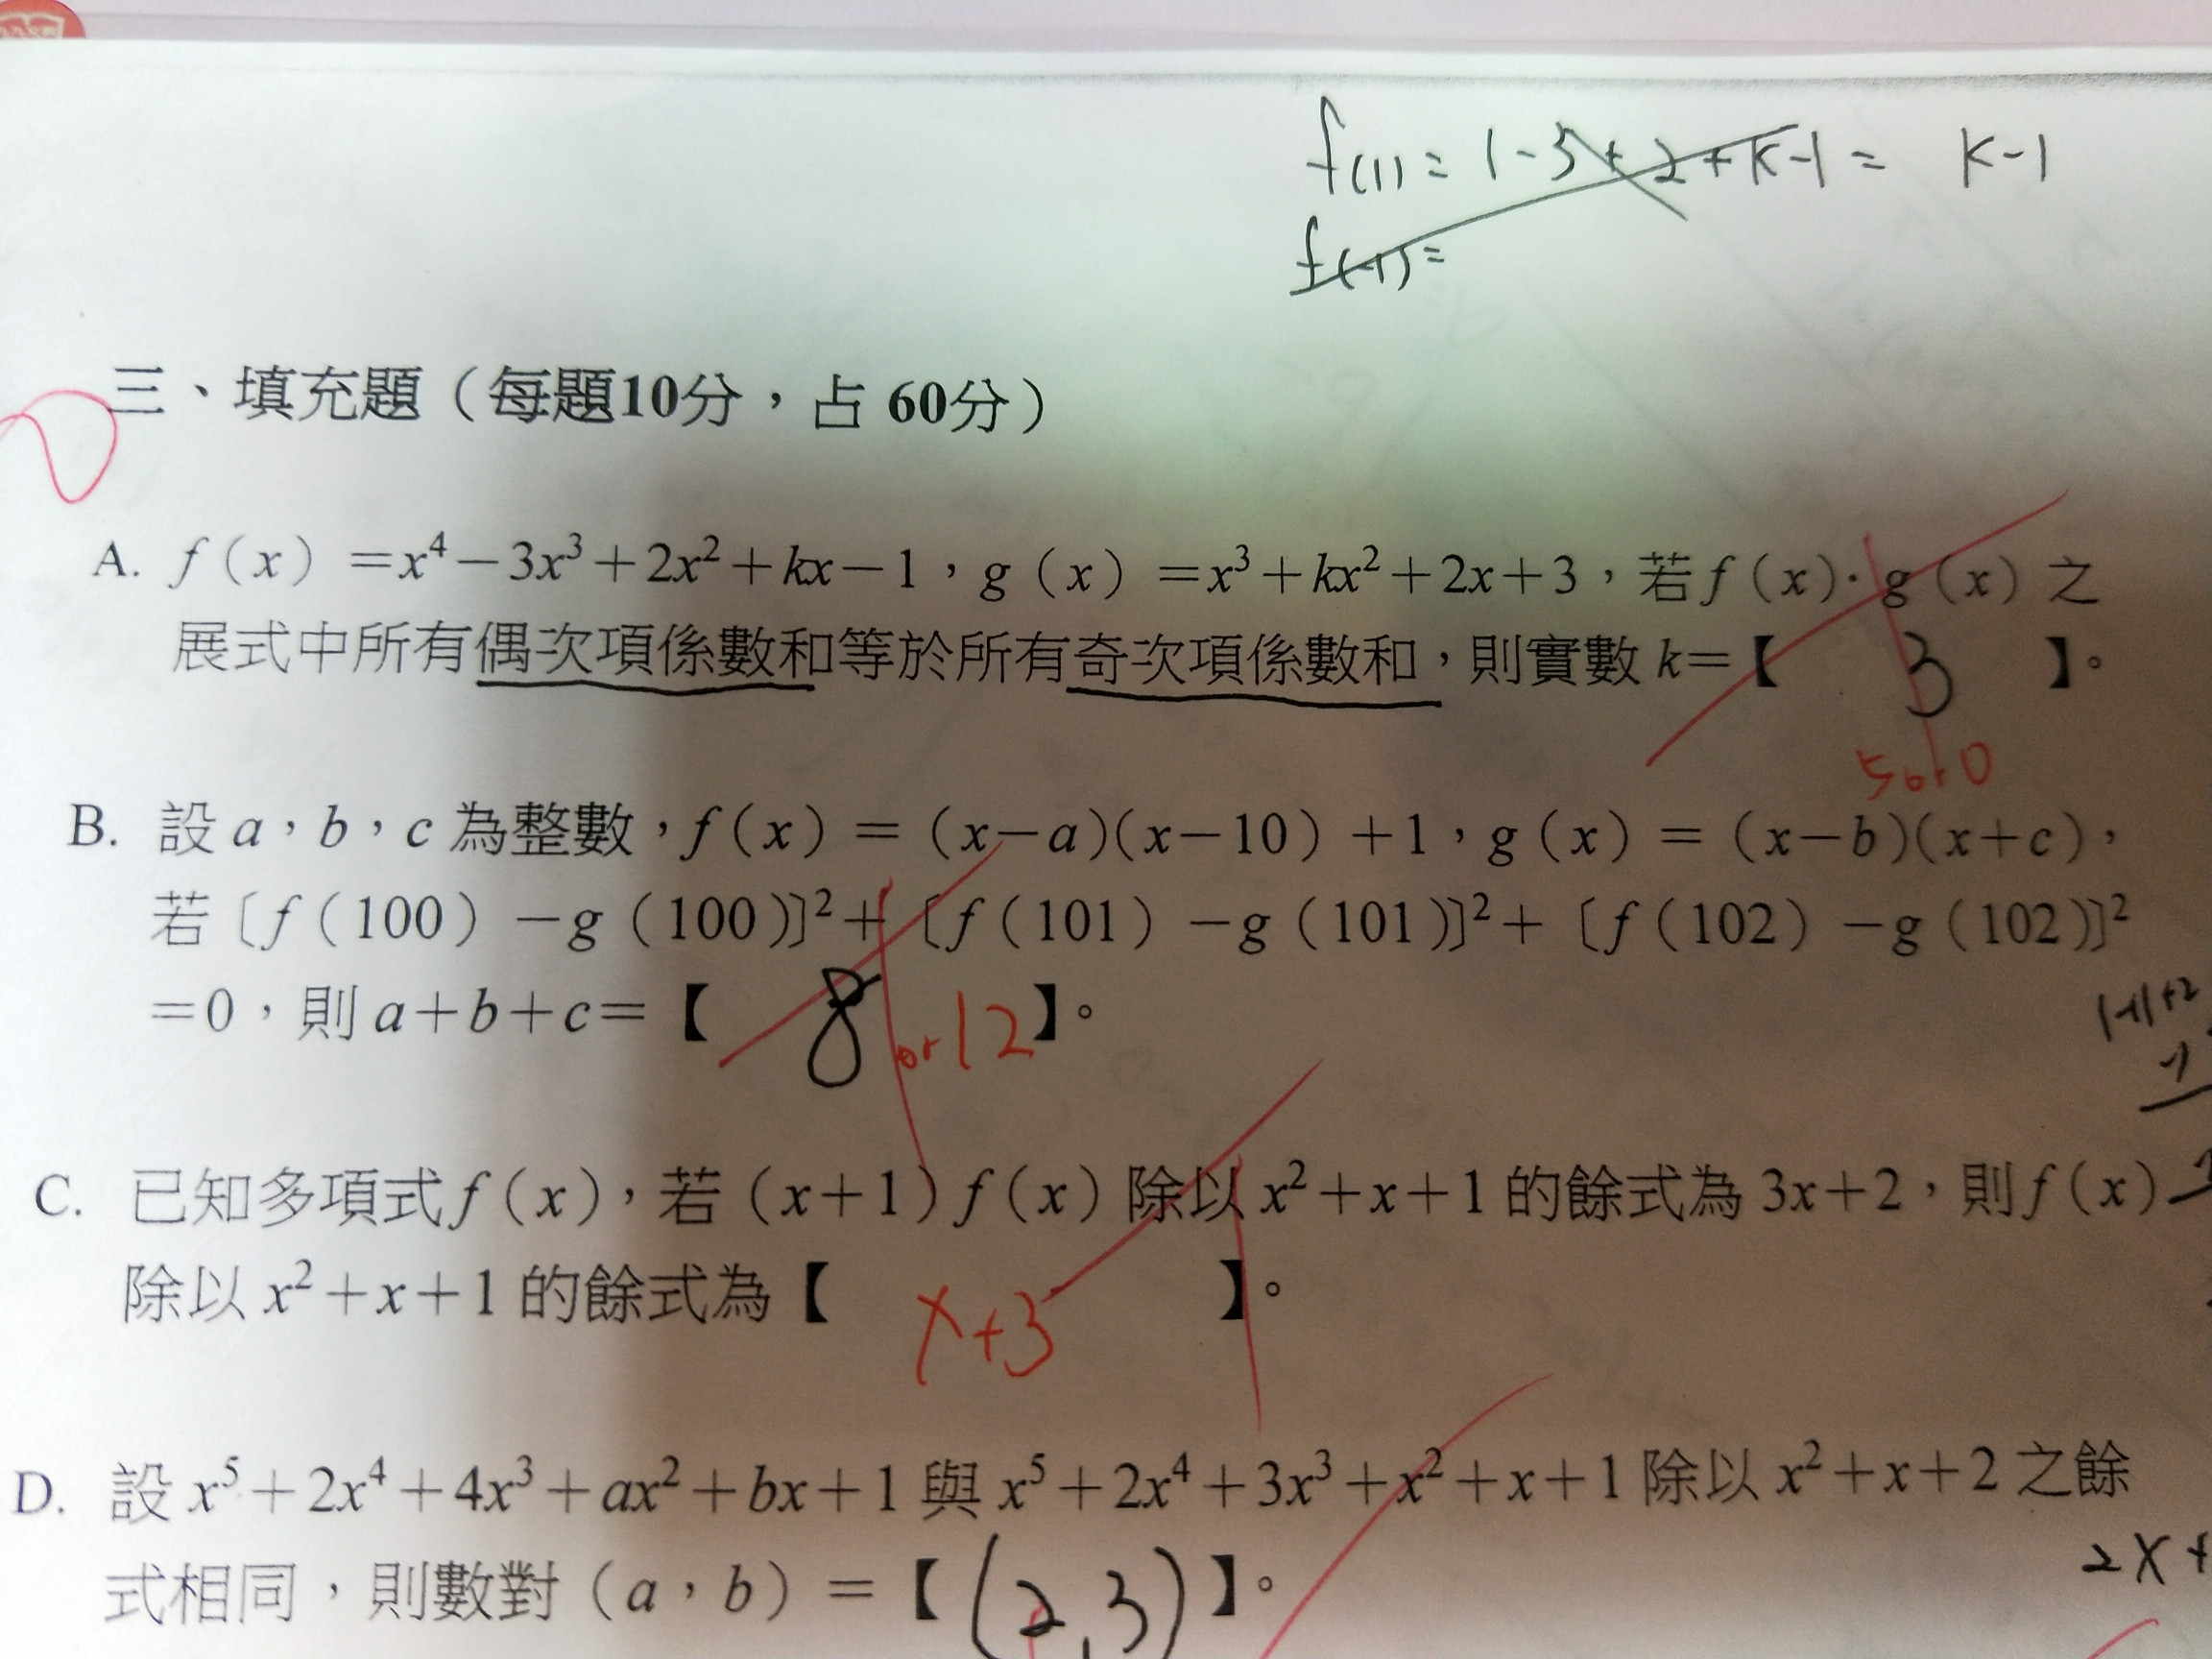 f(1) = 1-3+2+k-1 = k-1
f(-1) =
三、填充題（每題10分，占 60分）
A. f（x）＝x⁴－3x³＋2x²＋kx－1，g（x）＝x³＋kx²＋2x＋3，若f（x）·g（x）之
展式中所有偶次項係數和等於所有奇次項係數和，則實數 k＝【 3 】。
5 or 0
B. 設 a，b，c 為整數，f（x）＝（x－a）（x－10）＋1，g（x）＝（x－b）（x＋c），
若〔f（100）－g（100）〕²＋〔f（101）－g（101）〕²＋〔f（102）－g（102）〕²
＝0，則 a＋b＋c＝【 8 or 12 】。
C. 已知多項式f（x），若（x＋1）f（x）除以 x²＋x＋1 的餘式為 3x＋2，則f（x）
除以 x²＋x＋1 的餘式為【 x+3 】。
D. 設 x⁵＋2x⁴＋4x³＋ax²＋bx＋1 與 x⁵＋2x⁴＋3x³＋x²＋x＋1 除以 x²＋x＋2 之餘
2x+
式相同，則數對（a，b）＝【 (2,3) 】。